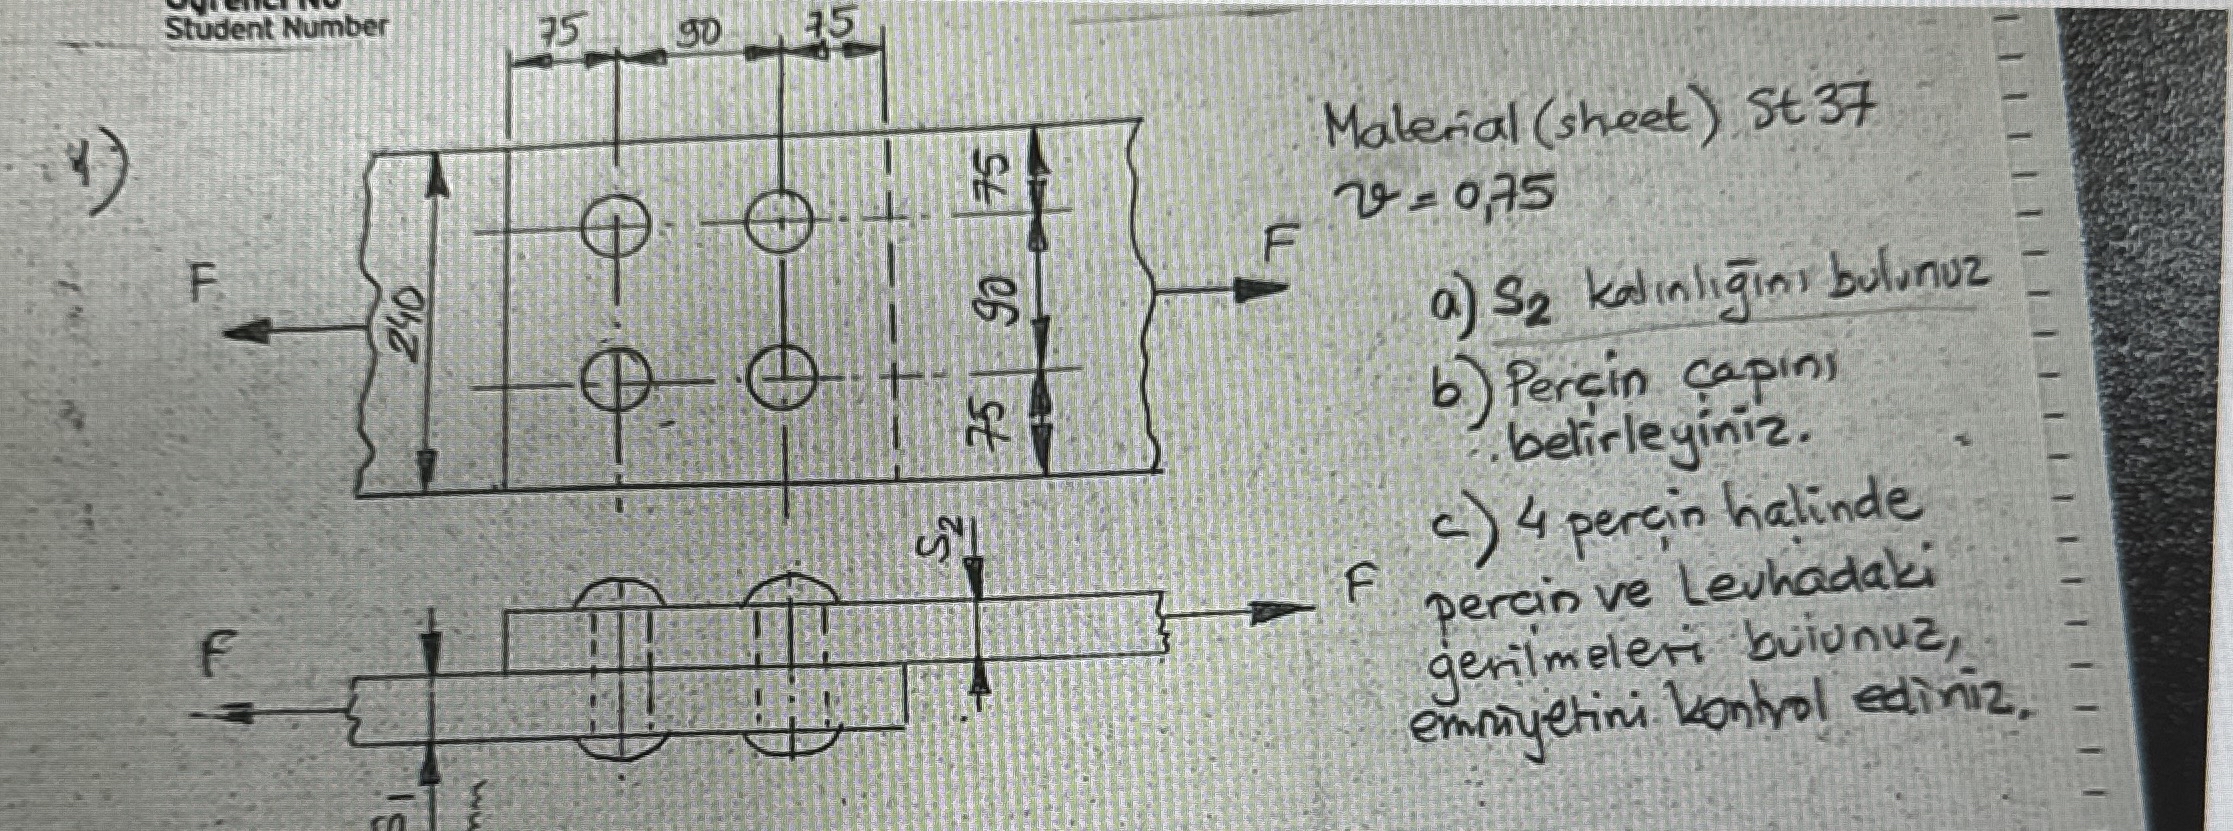 Student Number
75 90 75
1)
Material (sheet) St 37
ϑ = 0,75
75
F
F
240
90
a) S2 kalınlığını bulunuz
b) Perçin çapını
belirleyiniz.
75
c) 4 perçin halinde
S2
perçin ve Levhadaki
F
F
gerilmeleri bulunuz,
emniyetini kontrol ediniz.